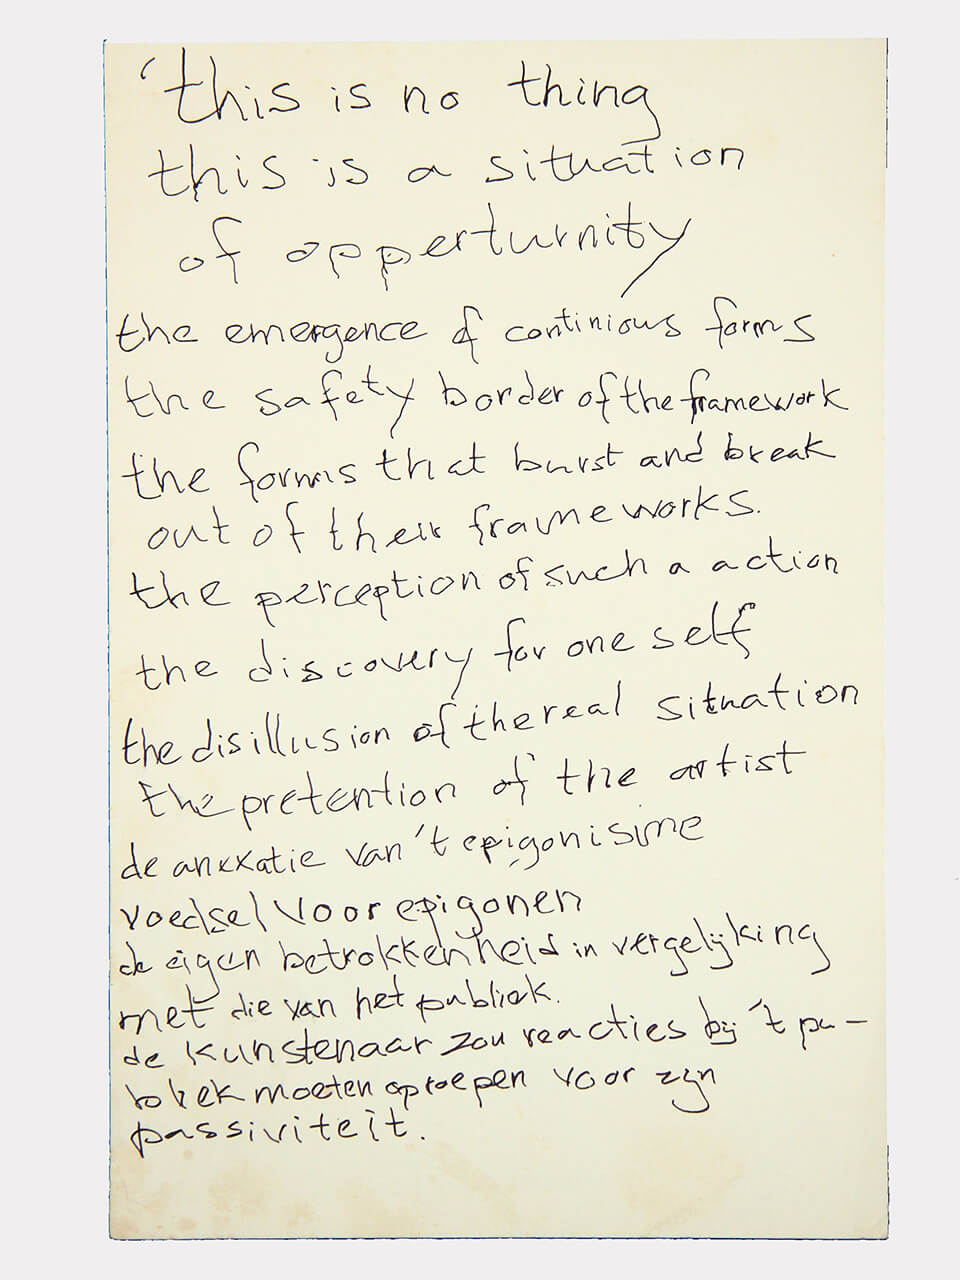 ‘this is no thing
this is a situation
of opperturnity
the emergence of continious forms
the safety border of the framework
the forms that burst and break
out of their frameworks.
the perception of such a action
the discovery for one self
the disillusion of the real situation
the pretention of the artist
de anxxatie van 't epigonisme
voedsel voor epigonen
de eigen betrokkenheid in vergelijking
met die van het publiek.
de kunstenaar zou reacties bij 't pu-
bliek moeten oproepen voor zijn
passiviteit.